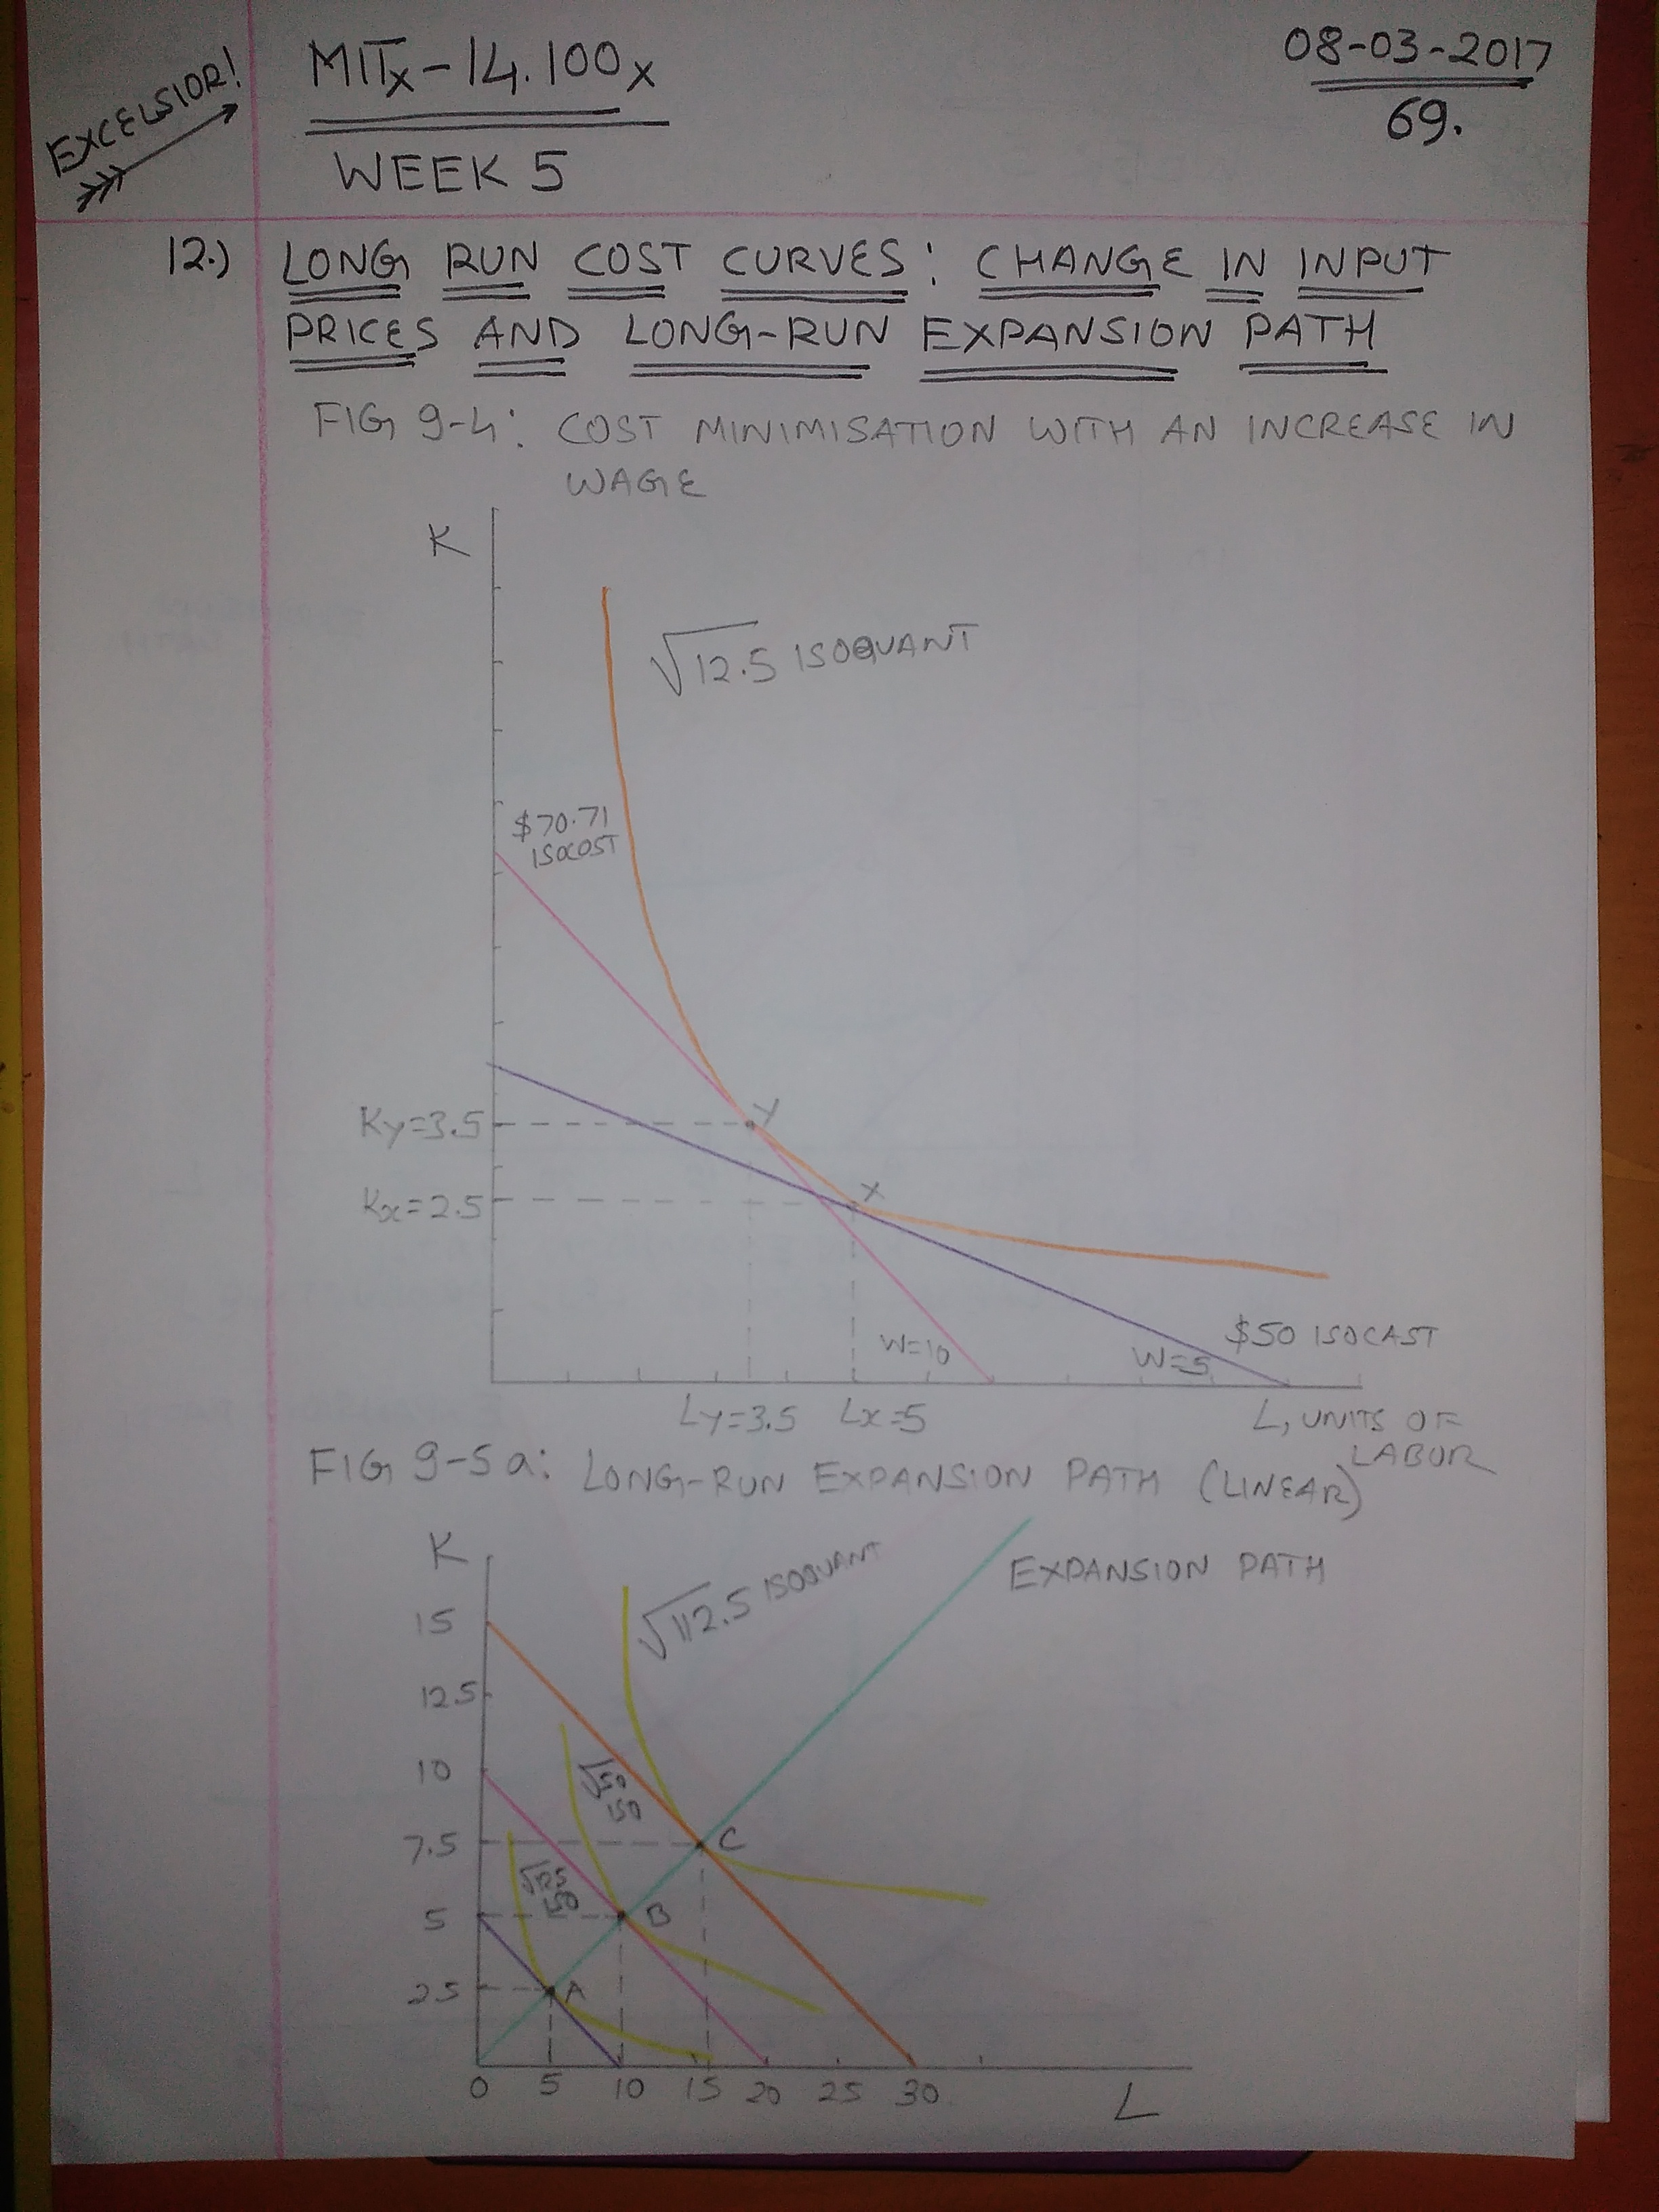 EXCELSIOR!
MITx-14.100x
WEEK 5
08-03-2017
69.
12.) LONG RUN COST CURVES: CHANGE IN INPUT
PRICES AND LONG-RUN EXPANSION PATH
FIG 9-4: COST MINIMISATION WITH AN INCREASE IN
WAGE
K
√12.5 ISOQUANT
$70.71
ISOCOST
Y
Ky=3.5
X
Kx=2.5
$50 ISOCAST
W=10
W=5
Ly=3.5
Lx=5
L, UNITS OF
LABOR
FIG 9-5a: LONG-RUN EXPANSION PATH (LINEAR)
K
√112.5 ISOQUANT
EXPANSION PATH
15
12.5
10
√50
ISO
7.5
C
√12.5
ISO
5
B
2.5
A
0 5 10 15 20 25 30
L